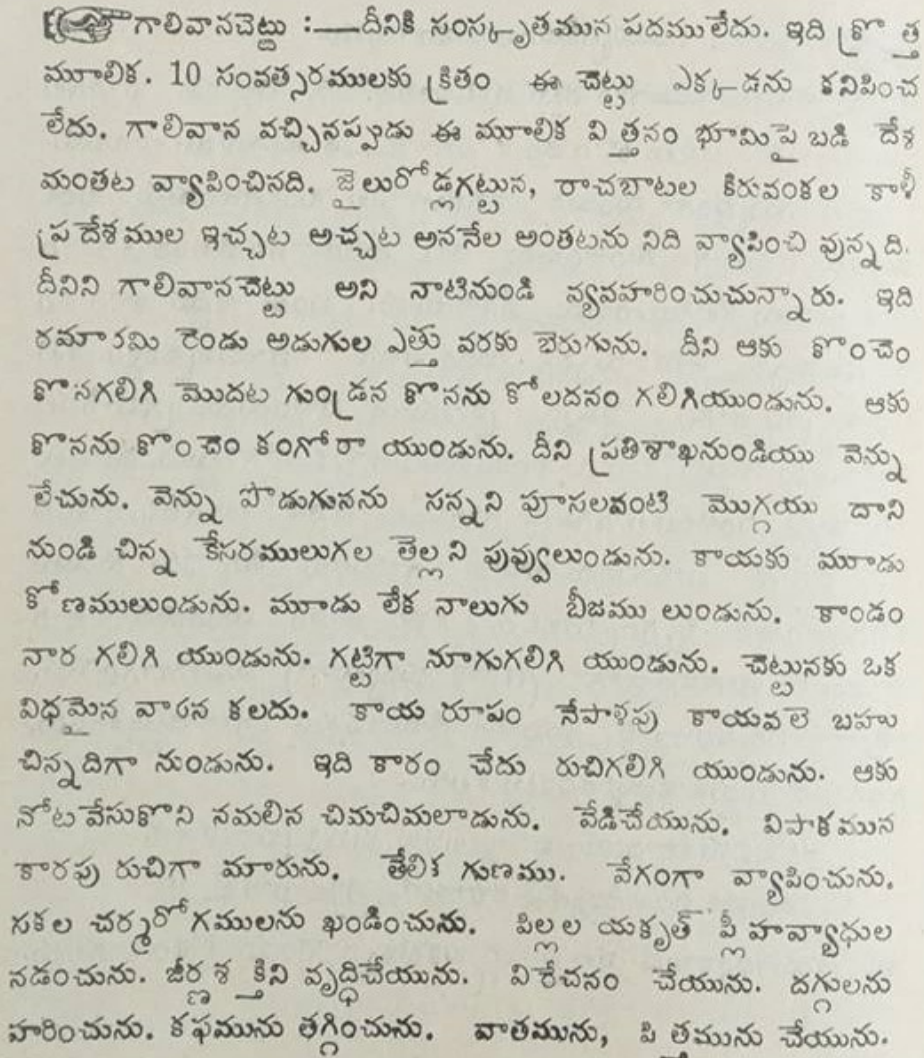 గాలివానచెట్టు :—దీనికి సంస్కృతమున పదములేదు. ఇది క్రొత్త
మూలిక. 10 సంవత్సరములకు క్రితం ఈ చెట్టు ఎక్కడను కనిపించ
లేదు. గాలివాన వచ్చినప్పుడు ఈ మూలిక విత్తనం భూమిపై బడి దేశ
మంతట వ్యాపించినది. జైలురోడ్లగట్టున, రాచబాటల కిరువంకల కాళీ
ప్రదేశముల ఇచ్చట అచ్చట అననేల అంతటను నిది వ్యాపించి వున్నది.
దీనిని గాలివానచెట్టు అని నాటినుండి వ్యవహరించుచున్నారు. ఇది
రమారమి రెండు అడుగుల ఎత్తు వరకు బెరుగును. దీని ఆకు కొంచెం
కొనగలిగి మొదట గుండ్రన కొనను కోలదనం గలిగియుండును. ఆకు
కొనను కొంచెం కంగోరా యుండును. దీని ప్రతిశాఖనుండియు వెన్ను
లేచును. వెన్ను పొడుగునను సన్నని పూసలవంటి మొగ్గయు దాని
నుండి చిన్న కేసరములుగల తెల్లని పువ్వులుండును. కాయకు మూడు
కోణములుండును. మూడు లేక నాలుగు బీజము లుండును. కాండం
నార గలిగి యుండును. గట్టిగా నూగుగలిగి యుండును. చెట్టునకు ఒక
విధమైన వాసన కలదు. కాయ రూపం నేపాళపు కాయవలె బహు
చిన్నదిగా నుండును. ఇది కారం చేదు రుచిగలిగి యుండును. ఆకు
నోటవేసుకొని నమలిన చిమచిమలాడును. వేడిచేయును. విపాకమున
కారపు రుచిగా మారును. తేలిక గుణము. వేగంగా వ్యాపించును.
సకల చర్మరోగములను ఖండించును. పిల్లల యకృత్ ప్లీహవ్యాధుల
నడంచును. జీర్ణశక్తిని వృద్ధిచేయును. విరేచనం చేయును. దగ్గులను
హరించును. కఫమును తగ్గించును. వాతమును, పిత్తమును చేయును.